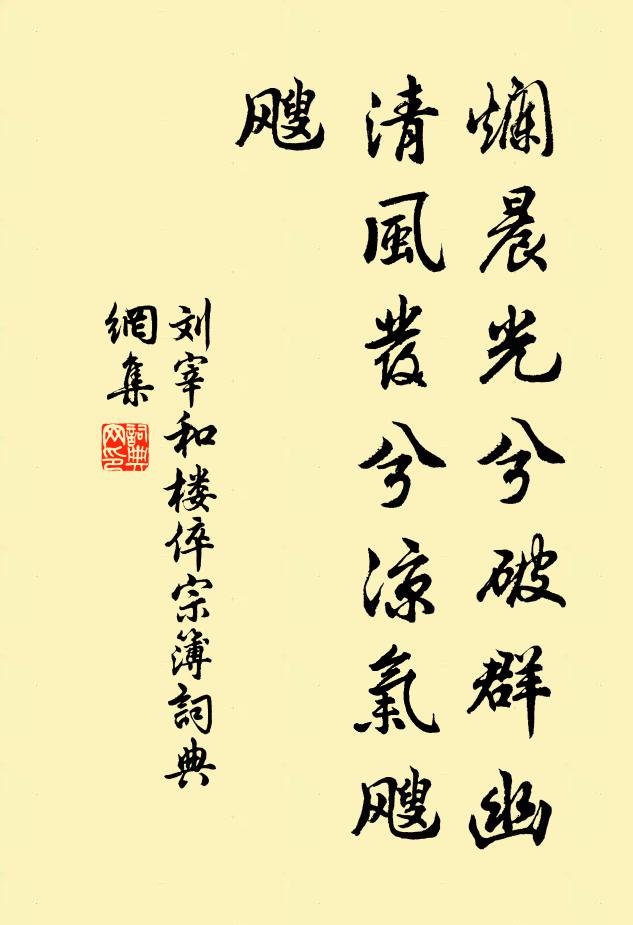 爛晨光兮破群幽
清風發兮涼氣飕
飕
刘宰和楼倅宗簿詞典
網集
詞典
网印